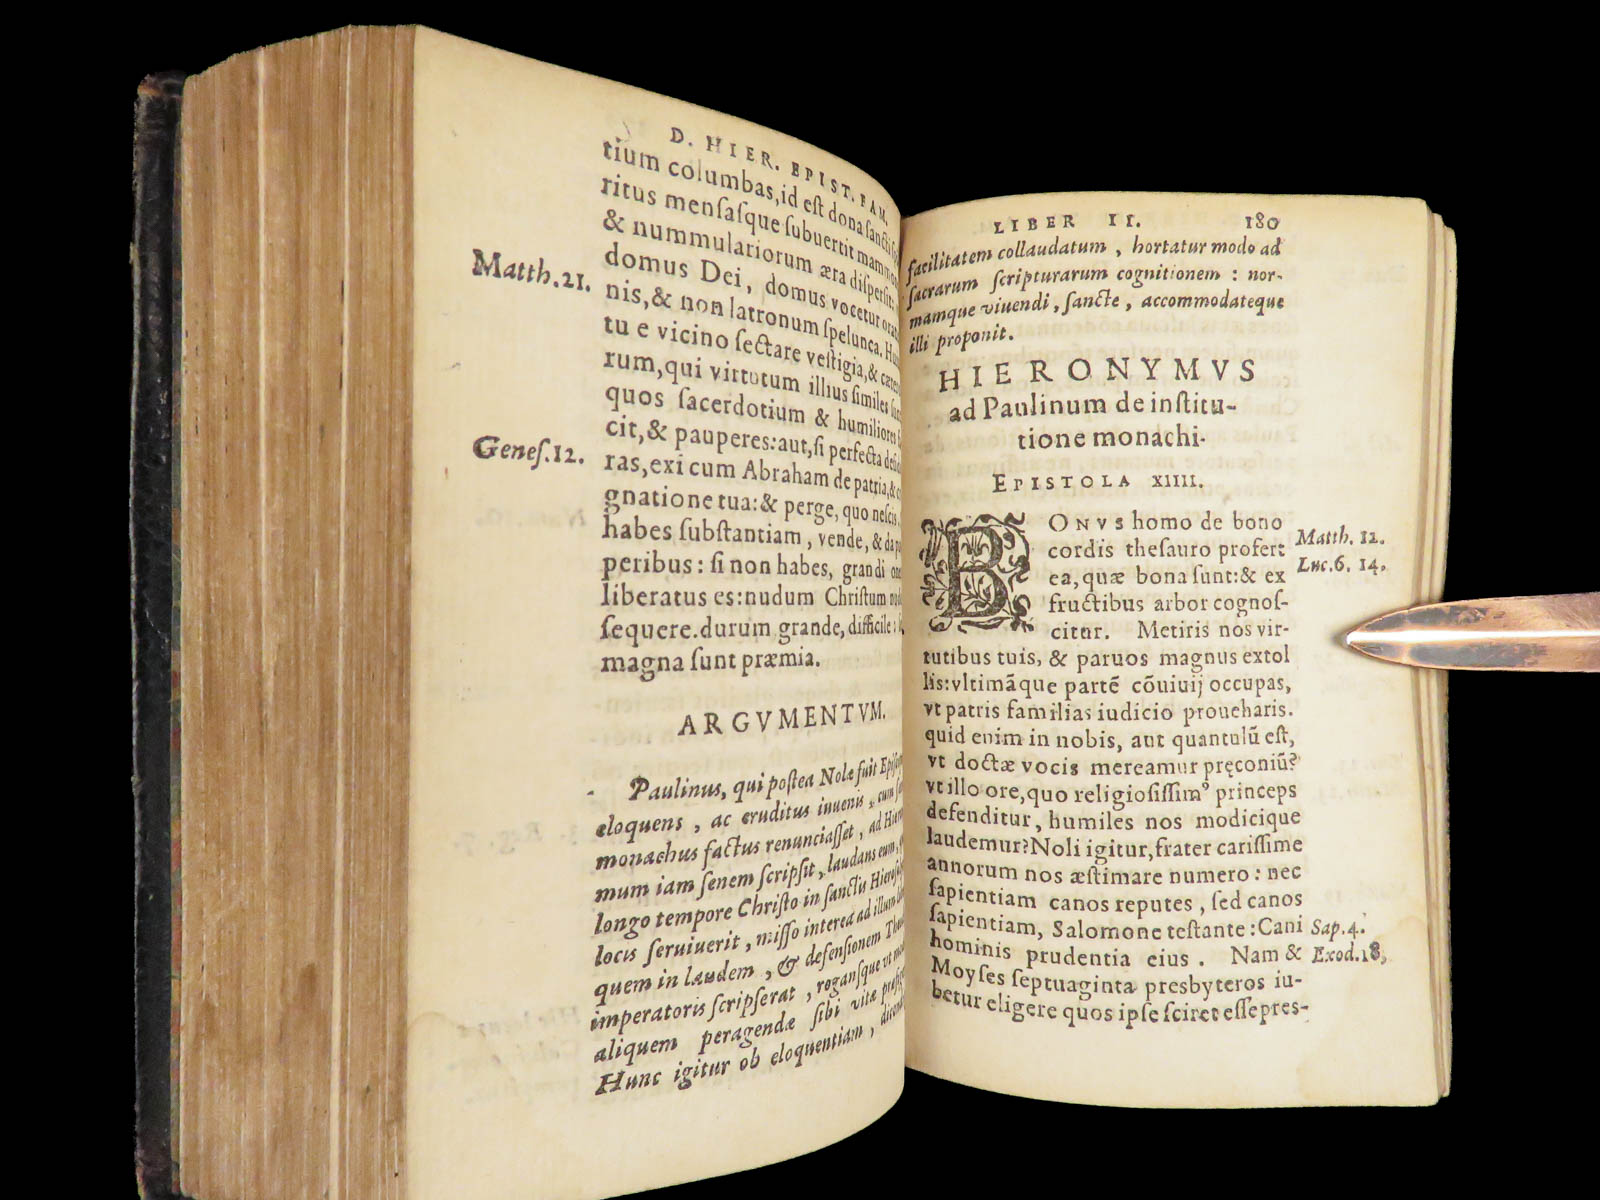 D. HIER. EPIST. FAM.
tium columbas,id est dona sancti
ritus mensasque subuertit mammon
& nummulariorum æra dispersit:
domus Dei, domus vocetur
nis,& non latronum spelunca.
Matth.21.
tu e vicino sectare vestigia,&
rum,qui virtutum illius similes
quos sacerdotium & humiliores
cit,& pauperes:aut,si perfecta
ras,exi cum Abraham de patria,&
Genes.12.
gnatione tua:& perge, quo nescis.
habes substantiam, vende, & da
peribus: si non habes, grandi
liberatus es:nudum Christum
sequere.durum,grande,difficile:
magna sunt præmia.
ARGVMENTVM.
Paulinus, qui postea Nolæ fuit
eloquens, ac eruditus iuuenis, cum
monachus factus renunciasset, ad
mum iam senem scripsit, laudans eum,
longo tempore Christo in sanctis
locis seruiuerit, misso interea ad illum
quem in laudem, & defensionem
imperatoris scripserat, rogansque vt
aliquem peragendæ sibi vitæ
Hunc igitur ob eloquentiam,
LIBER II. 180
facilitatem collaudatum, hortatur modo ad
sacrarum scripturarum cognitionem: nor-
mamque viuendi, sancte, accommodateque
illi proponit.
HIERONYMVS
ad Paulinum de institu-
tione monachi.
EPISTOLA XIIII.
BONVS homo de bono
cordis thesauro profert
Matth. 12.
ea,quæ bona sunt:& ex
Luc.6. 14.
fructibus arbor cognos-
citur. Metiris nos vir-
tutibus tuis, & paruos magnus extol
lis:vltimāque partē cōuiuij occupas,
vt patris familias iudicio proueharis.
quid enim in nobis, aut quantulū est,
vt doctæ vocis mereamur pręconiū?
vt illo ore,quo religiosissimꝰ princeps
defenditur, humiles nos modicique
laudemur?Noli igitur,frater carissime
annorum nos æstimare numero: nec
sapientiam canos reputes, sed canos
sapientiam, Salomone testante:Cani
Sap.4.
hominis prudentia eius. Nam &
Exod.18,
Moyses septuaginta presbyteros iu-
betur eligere quos ipse sciret esse pres-